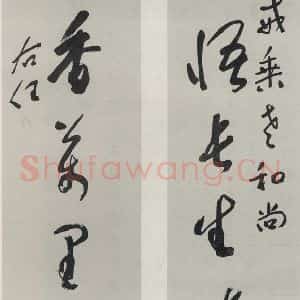 戒乘老和尚
悟長生
香萬里
右任
Shufawang.CN